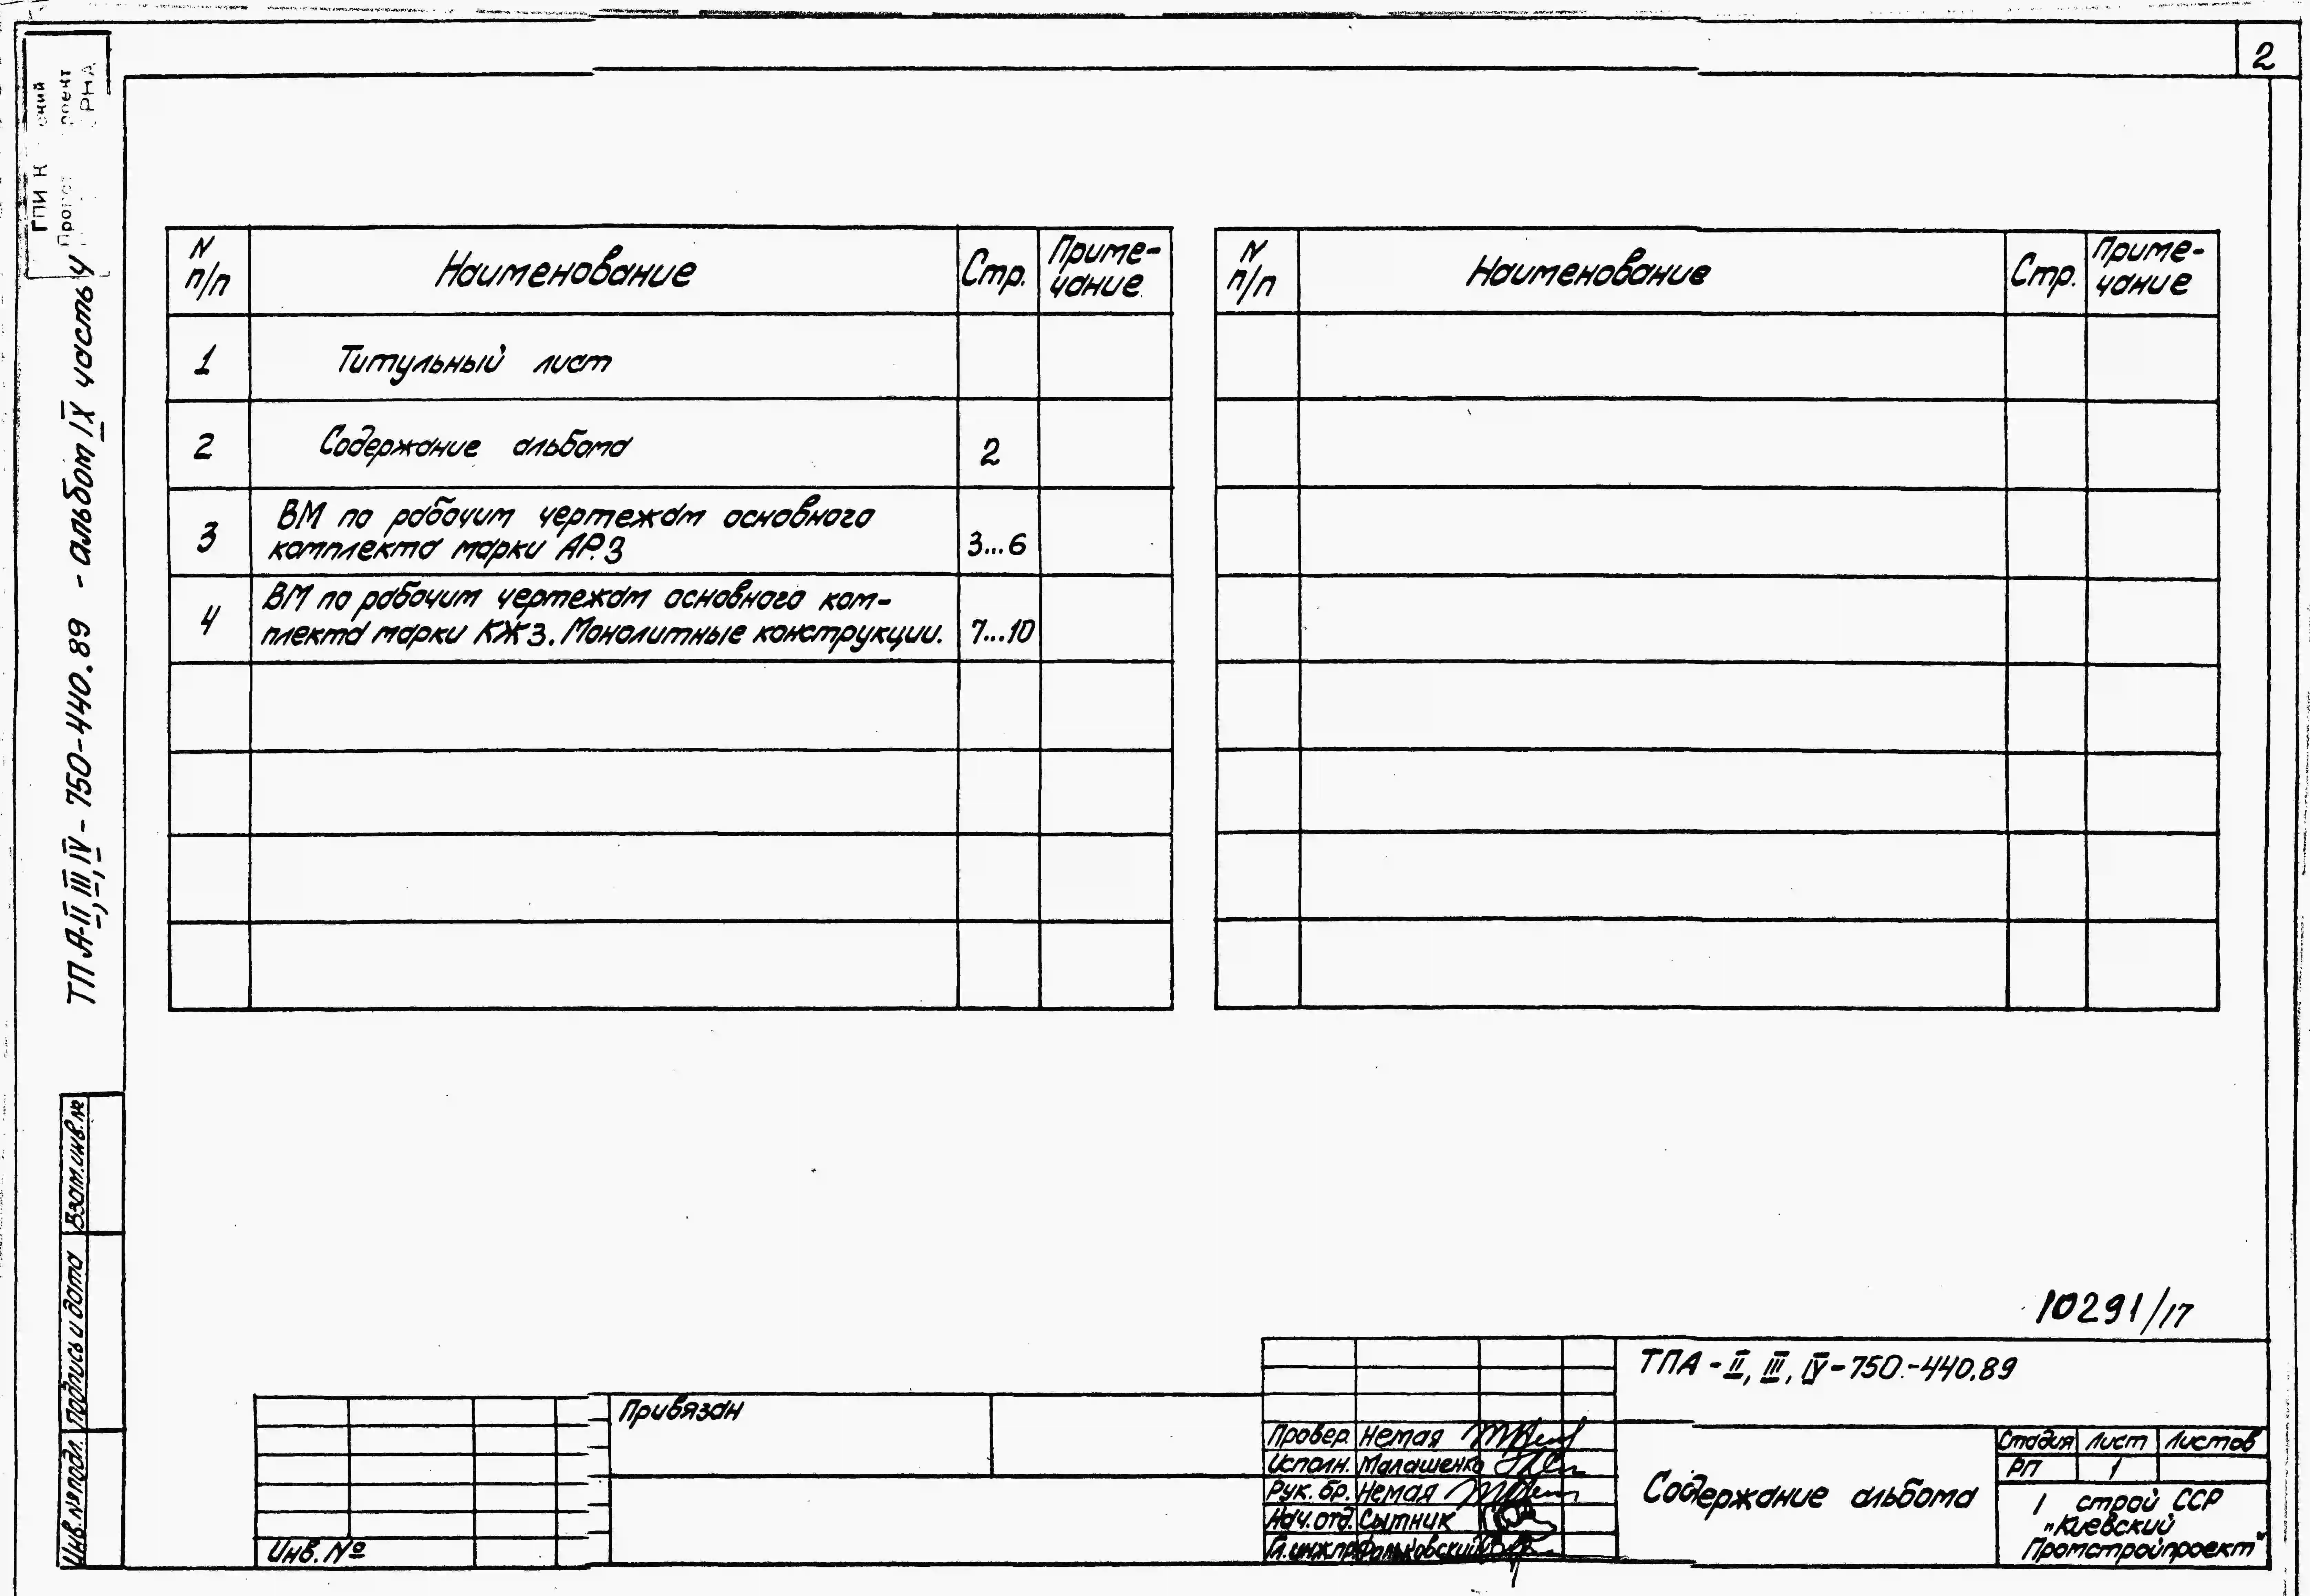 2
N
п/п
Наименование
Стр.
Приме-
чание
1 Титульный лист
2 Содержание альбома 2
3 ВМ по рабочим чертежам основного
комплекта марки АР.3 3...6
4 ВМ по рабочим чертежам основного ком-
плекта марки КЖ3. Монолитные конструкции. 7...10
N
п/п
Наименование
Стр.
Приме-
чание
ТП А-II, III, IV-750-440.89 - альбом IX часть 4
Взам.инв.№
Подпись и дата
Инв.№ подл.
10291/17
ТПА-II, III, IV-750-440.89
Привязан
Инв. №
Провер. Немая
Исполн. Малашенко
Рук. бр. Немая
Нач. отд. Сытник
Гл.инж.пр. Фальковский
Содержание альбома
Стадия Лист Листов
РП 1
строй ССР
„Киевский
Промстройпроект"